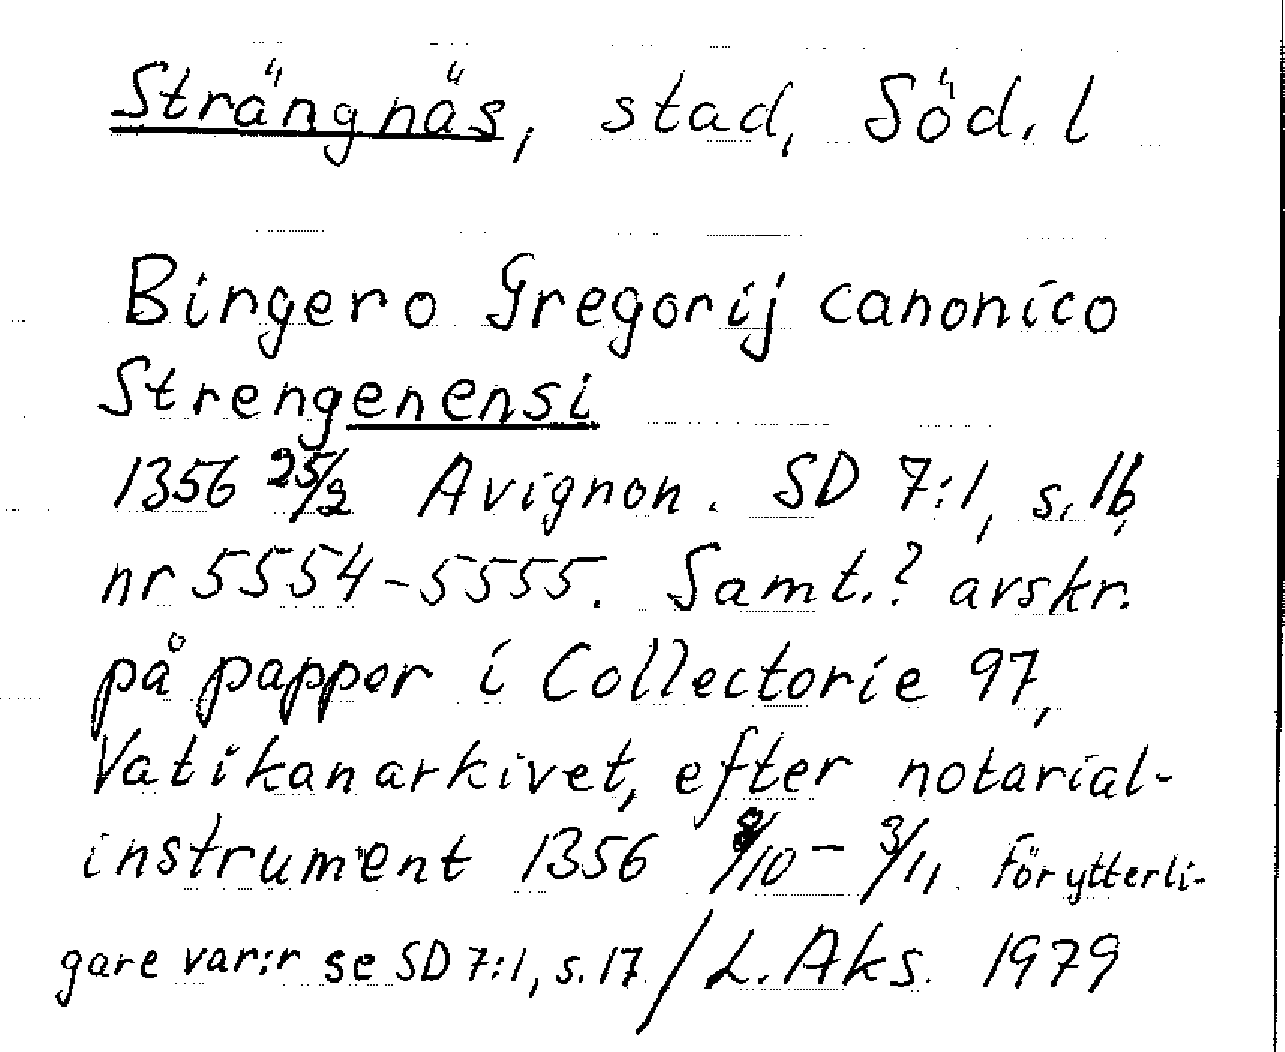 Strängnäs, stad, Söd. l
Bingero Gregorij canonico
Strengenensi
1356 25/2 Avignon. SD 7:1, s. 16,
nr 5554-5555. Samt.? avskr.
på papper i Collectorie 97,
Vatikanarkivet, efter notarial-
instrument 1356 8/10 - 3/11. För ytterli-
gare var:r se SD 7:1, s. 17 / L. Aks. 1979